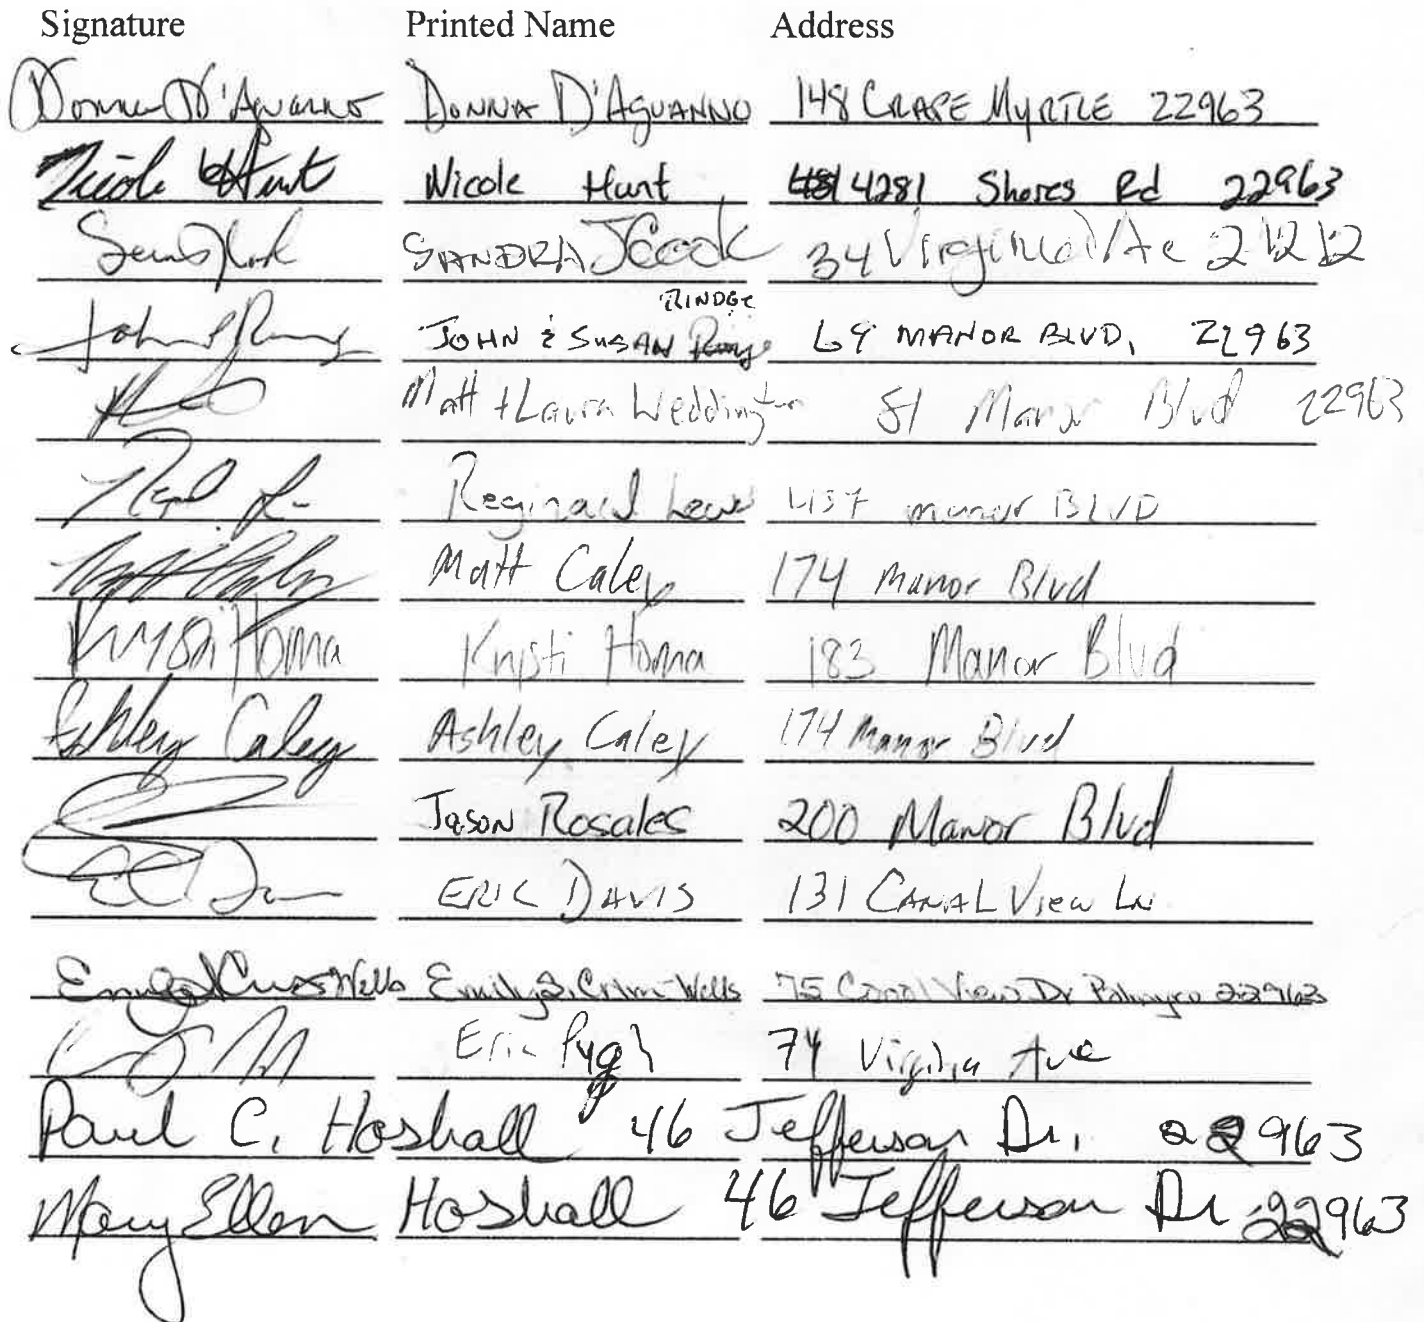 Signature Printed Name Address
Donna D'Aguanno DONNA D'AGUANNO 148 CRAPE MYRTLE 22963
Nicole Hunt Nicole Hunt 4281 Shores Rd 22963
SANDRA J Cook 34 Virginia Ave
RINDGE
JOHN & SUSAN 69 MANOR BLVD, 22963
Matt + Laura Weddington 81 Manor Blvd 22963
Reginald Lewis 437 manor BLVD
Matt Caley 174 Manor Blvd
Kristi Homa Kristi Homa 183 Manor Blvd
Ashley Caley Ashley Caley 174 Manor Blvd
Jason Rosales 200 Manor Blvd
ERIC DAVIS 131 CANAL View LN
Emily S. Crim-Wells 75 Canal View Dr Palmyra 22963
Eric Pugh 74 Virginia Ave
Paul C. Hoshall 46 Jefferson Dr. 22963
Mary Ellen Hoshall 46 Jefferson Dr 22963